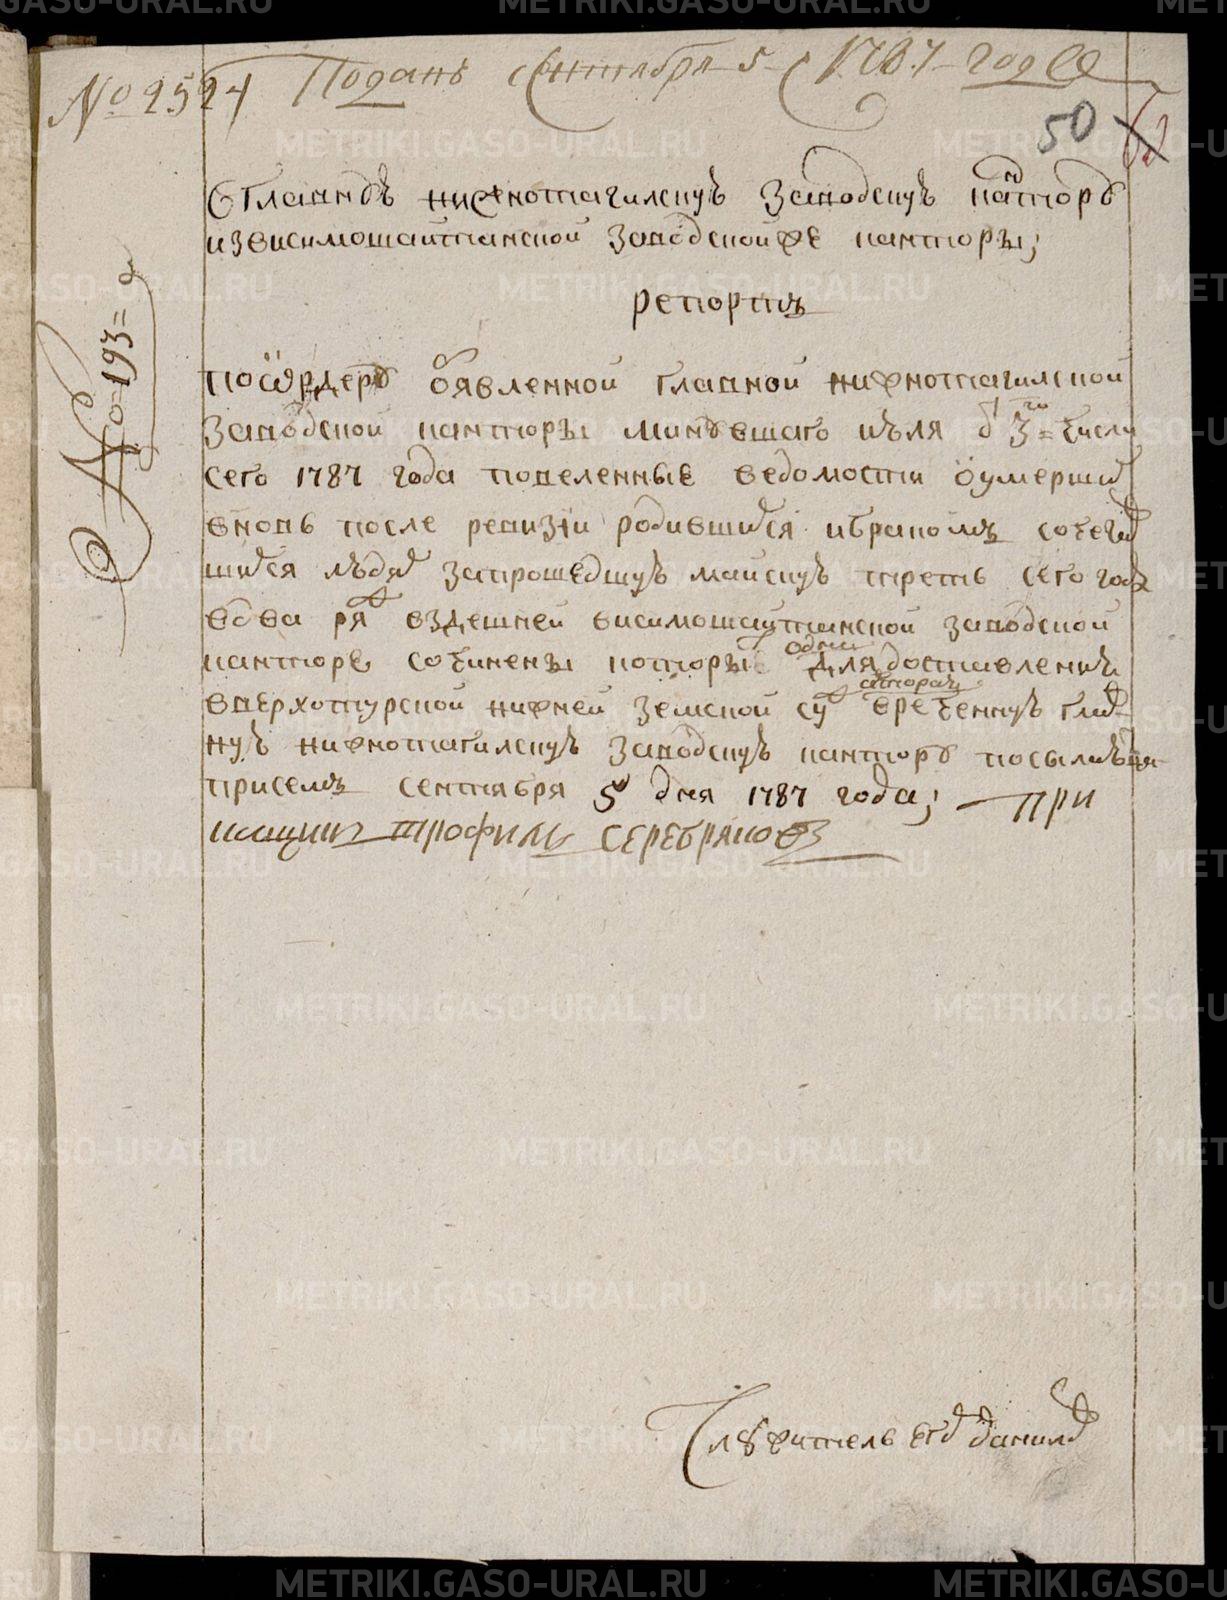 № 2524 Поданъ Сентября 5 1787 году
50
Вглавную нижнотагилскую заводскую кантору
извисимошайтанской заводскойже канторы;
репортъ
№ 193
поѡрдеру оявленной главной нижнотагилской
заводской канторы минувшаго июля 3 числа
сего 1787 года поделенные ведомости оумерши
вновь после ревизии родившихся ибракомъ сочета
шихся людя запрошедшую майскую треть сего года
здешней висимошайтанской заводской
канторе сочинены которы одни для доставления
вверхотурской нижней земской су авторая вреченную глав
ную нижнотагилскую заводскую кантору посылаются
присемъ сентября 5 дня 1787 года; При
кащикъ трофимъ СЕРЕБРЯКОВЪ
METRIKI.GASO-URAL.RU